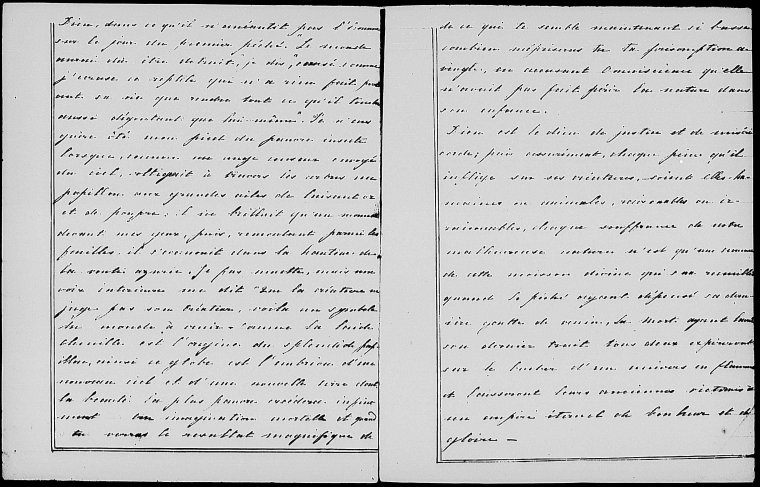 Dieu, dans ce qu'il n'anéantit pas l'homme
sur le jour du premier péché. "Le monde
aurait dû être détruit, je dis, "
j'écrase ce reptile que n'a rien fait pour
sa vie que rendre tout ce qu'il touche
aussi dégoutant que lui-même". Je n'eus
guère ôté mon pied du pauvre insecte
lorsque, comme un ange censeur envoyé
du ciel, voltigeait à travers les arbres un
papillon aux grandes ailes de luisant or
et de pourpre: il ne brillait qu'un moment
devant mes yeux, puis, remontant parmi les
feuilles il s'évanouit dans la hauteur de
la voute azurée. Je fus muette, mais une
voix intérieure me dit "Que la créature ne
juge pas son Créateur, voila un symbole
du monde à venir - comme la laide
chenille est l'origine du splendide pap-
illon, ainsi ce globe est l'embrion d'un
nouveau ciel et d'une nouvelle terre dont
la beauté la plus pauvre excédera infini-
ment ton imagination mortelle et quand
tu verras le resultat magnifique de
de ce qui te semble maintenant si basse
combien mépriseras tu ta présomption a-
veugle, en accusant Omniscience qu'elle
n'avait pas fait périr la nature dans
son enfance.
Dieu est le dieu de justice et de miséri-
corde; puis assurément, chaque peine qu'il
inflige sur ses créatures, soient elles hu-
maines ou animales, raisonnables ou ir-
raisonnables, chaque souffrance de notre
malheureuse nature n'est qu'une semence
de cette moisson divine qui sera recueillie
quand le péché ayant dépensé sa dern-
ière goutte de venin, la mort ayant lancé
son dernier trait tous deux expireront
sur le bucher d'un univers en flamme
et laisseront leurs anciennes victimes à
un empire éternel de bonheur et de
gloire -